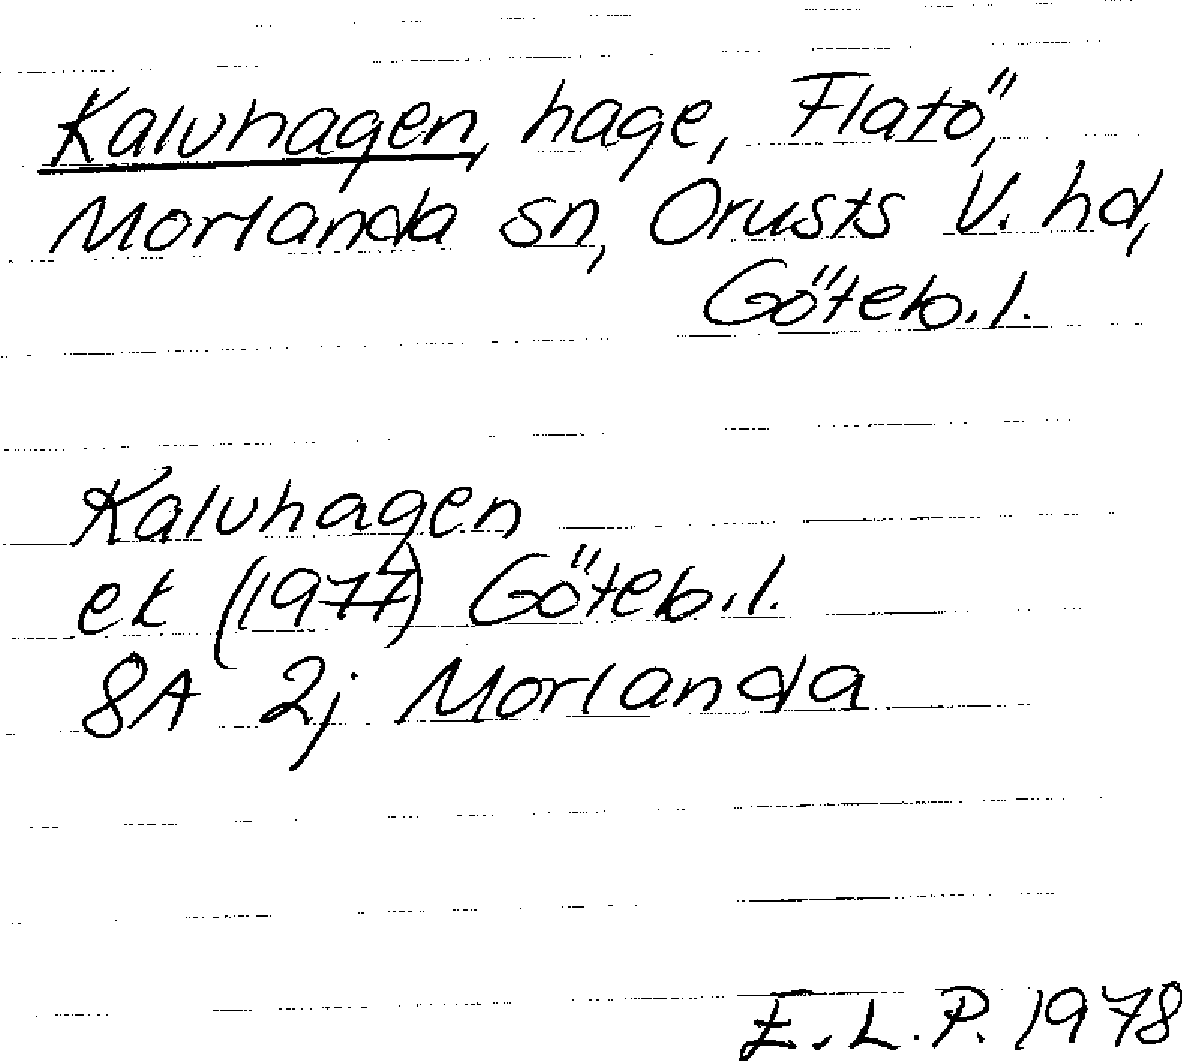 Kalvhagen, hage, Flatö,
Morlanda sn, Orusts V. hd,
Göteb.l.
Kalvhagen
ek (1977) Göteb.l.
8A 2j Morlanda
E.L.P. 1978